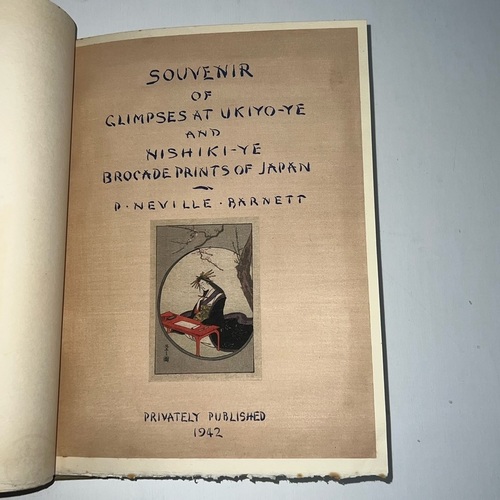 SOUVENIR
OF
GLIMPSES AT UKIYO-YE
AND
NISHIKI-YE
BROCADE PRINTS OF JAPAN
P · NEVILLE · BARNETT
PRIVATELY PUBLISHED
1942